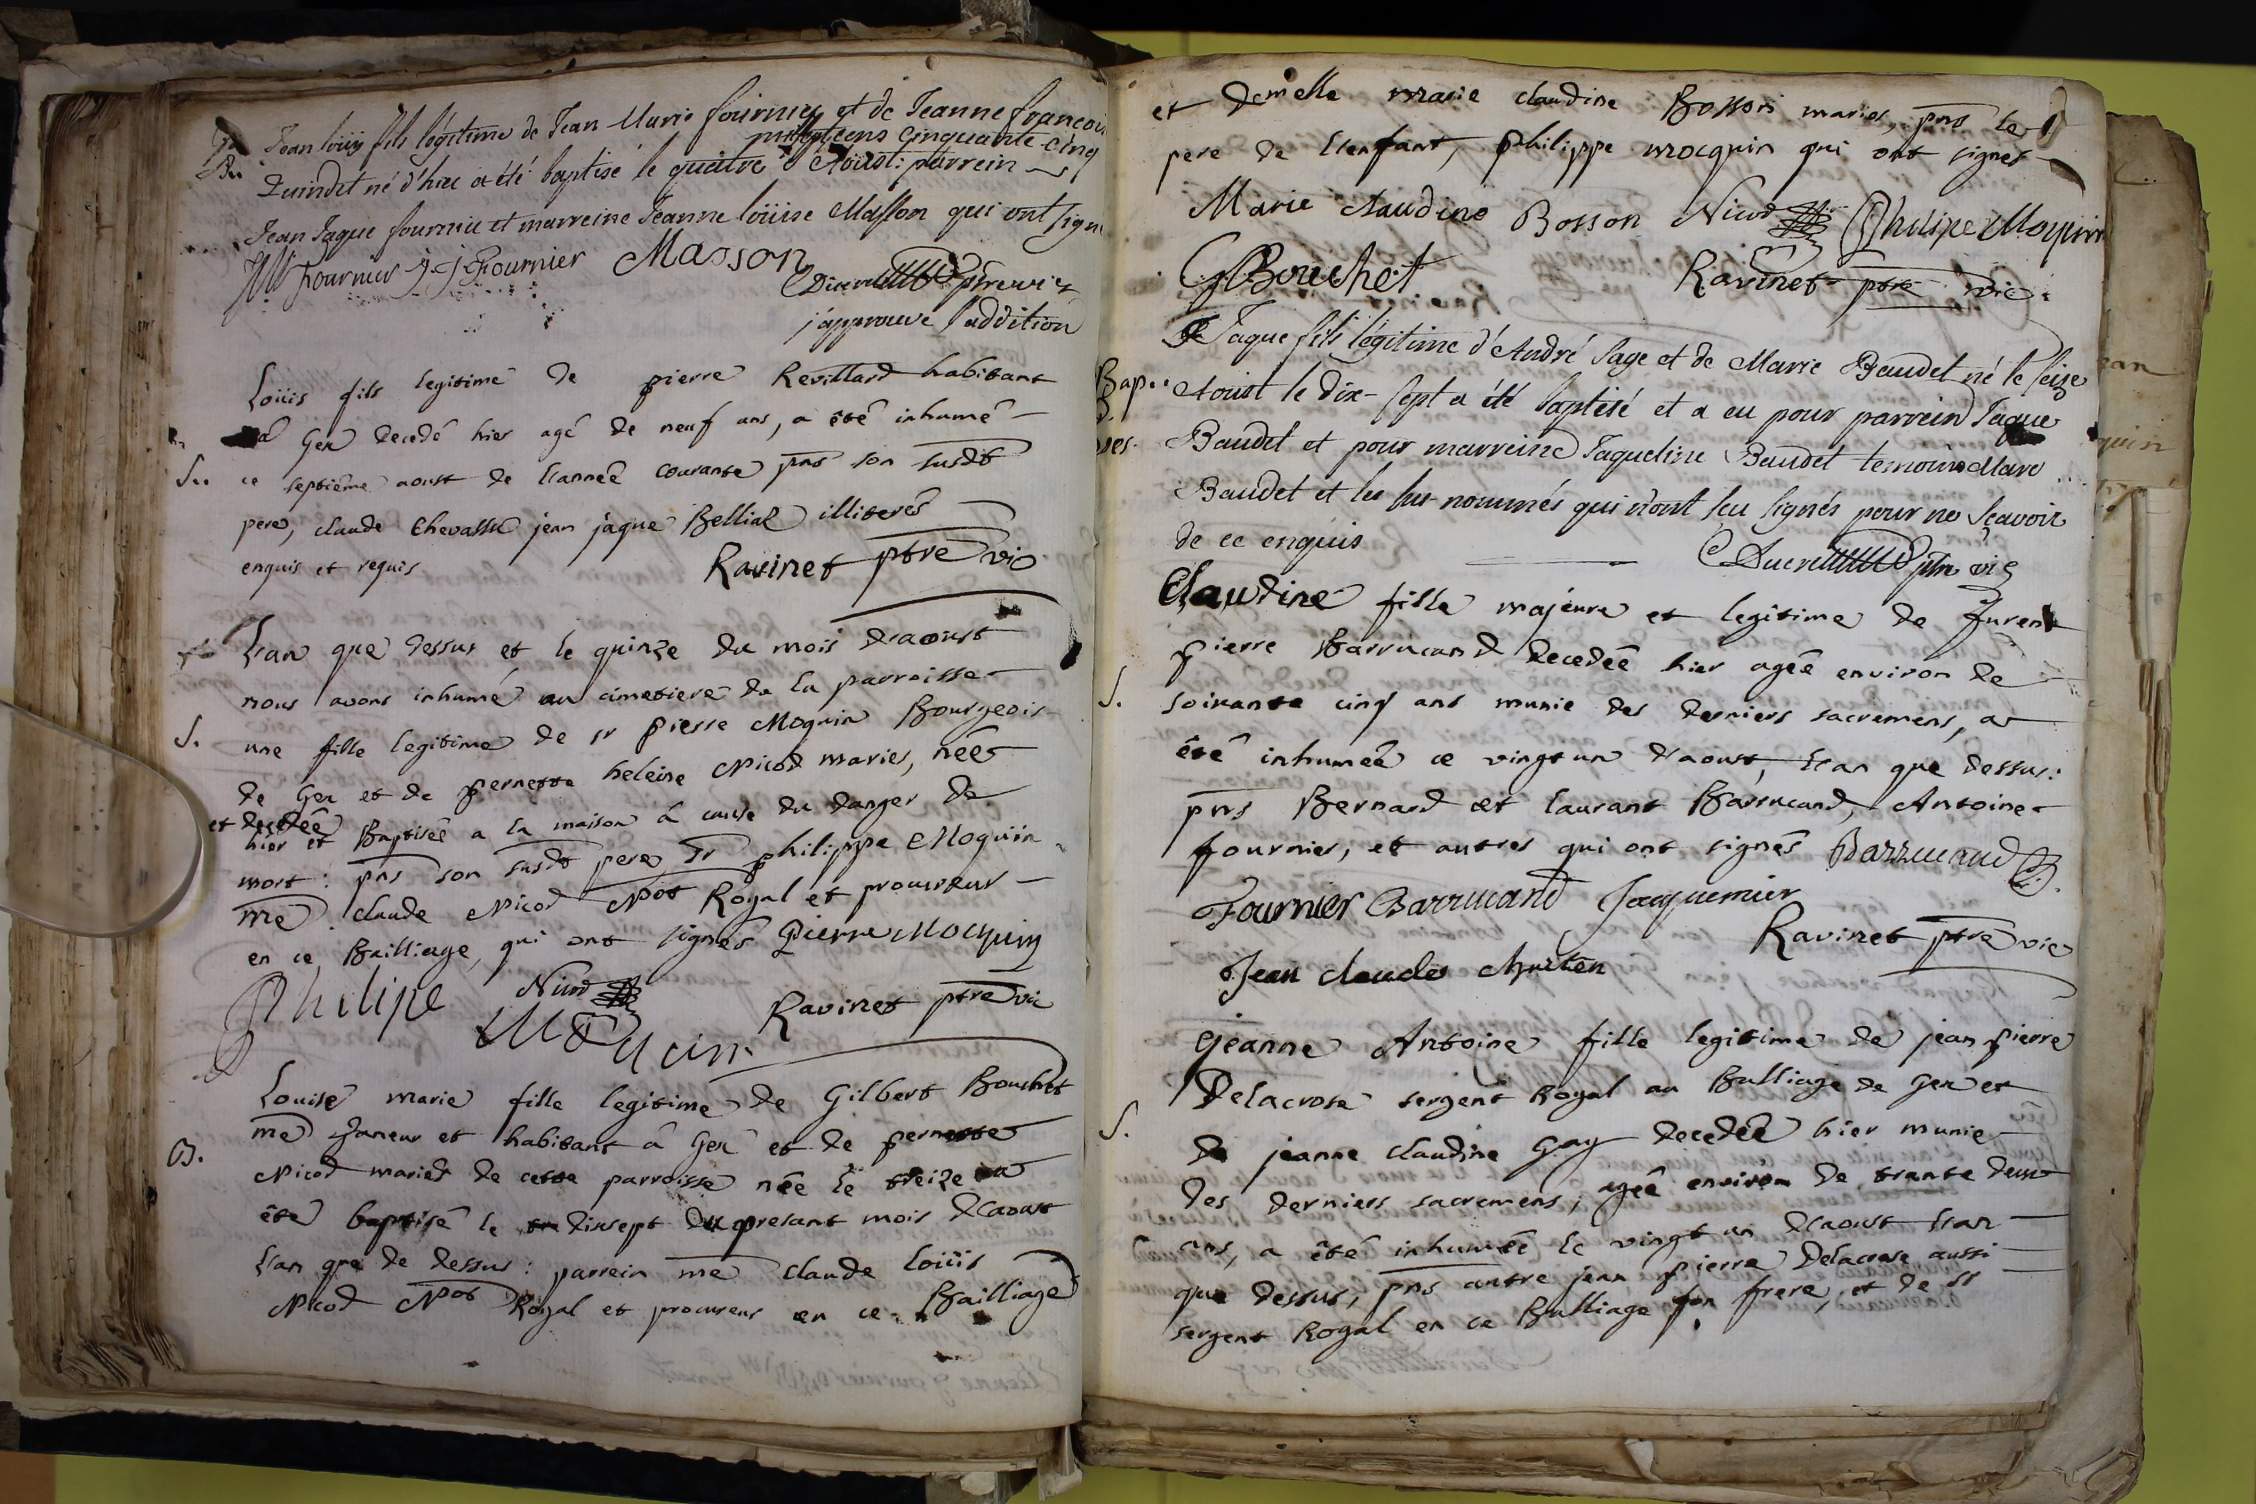 Jean loüis fils légitime de Jean Marie fournier et de Jeanne francois
mil sept cens cinquante cinq
Bap.
né d'hier a été baptisé le quatre Aoust: parrein
Jean Jaque fournier et marreine Jeanne loüise Masson qui ont signé
JM Fournier J J Fournier Masson
ptre vic
j'approuve l'addition
Loüis fils legitime de pierre Revillard habitant
a Gex decedé hier agé de neuf ans, a été inhumé
S.. ce septiême aoust de l'année courante pns son susdt
pere, claude Chevassu jean jaque Belliat illiterés
enquis et requis Ravinet ptre vic
L'an que dessus et le quinze du mois d'aoust
nous avons inhumé au cimetiere de la parroisse
S. une fille legitime de sr pierre Moquin Bourgeois
de Gex et de pernette heleine Nicod maries, née
et decedée
hier et Baptisée a la maison â cause du danger de
mort: pns son susdt pere, Sr philippe Moquin
me claude Nicod Not Royal et procureur
en ce Bailliage, qui ont signés Pierre Mocquin
Philipe Nicod
Mocquin Ravinet ptre vic
Louise marie fille legitime de Gilbert Bouchet
me Taneur et habitant â Gex et de pernette
B. Nicod mariés de cette parroisse née le treize a
été baptisé le dixsept du presant mois d'aoust
l'an que de dessus: parrein me claude loüis
Nicod Not Royal et procureur en ce Bailliage
et demelle marie claudine Bosson maries, pns le
pere de l'enfant, philippe mocquin qui ont signes
Marie Claudine Bosson Nicod Philipe Mocquin
G Bouchet Ravinet ptre vic.
Jaque fils légitime d'André Sage et de Marie Baudet né le seize
Bap.. Aoust le dix-sept a été baptisé et a eu pour parrein Jaque
Baudet et pour marreine Jaqueline Baudet temoins Marc
Baudet et les sus-nommés qui n'ont sçu signés pour ne sçavoir
de ce enquis
ptre vic
Claudine fille majeure et legitime de furent
pierre Barrucand decedée hier agée environ de
S. soixante cinq ans munie des derniers sacremens, a
été inhumée ce vingt un d'aoust, l'an que dessus:
pns Bernard et laurant Barrucand, Antoine
fournier, et autres qui ont signés Barrucand
Fournier Barrucand Jacquemier
Ravinet ptre vic
Jean claude
jeanne Antoine fille legitime de jean pierre
Delacrose sergent Royal au Balliage de Gex et
S. de jeanne claudine Gay decedée hier munie
des derniers sacremens, agée environ de trante deux
ans, a été inhumée le vingt un d'aoust l'an
que dessus, pns autre jean pierre Delacrose aussi
sergent Royal en ce Balliage son frere, et de sr